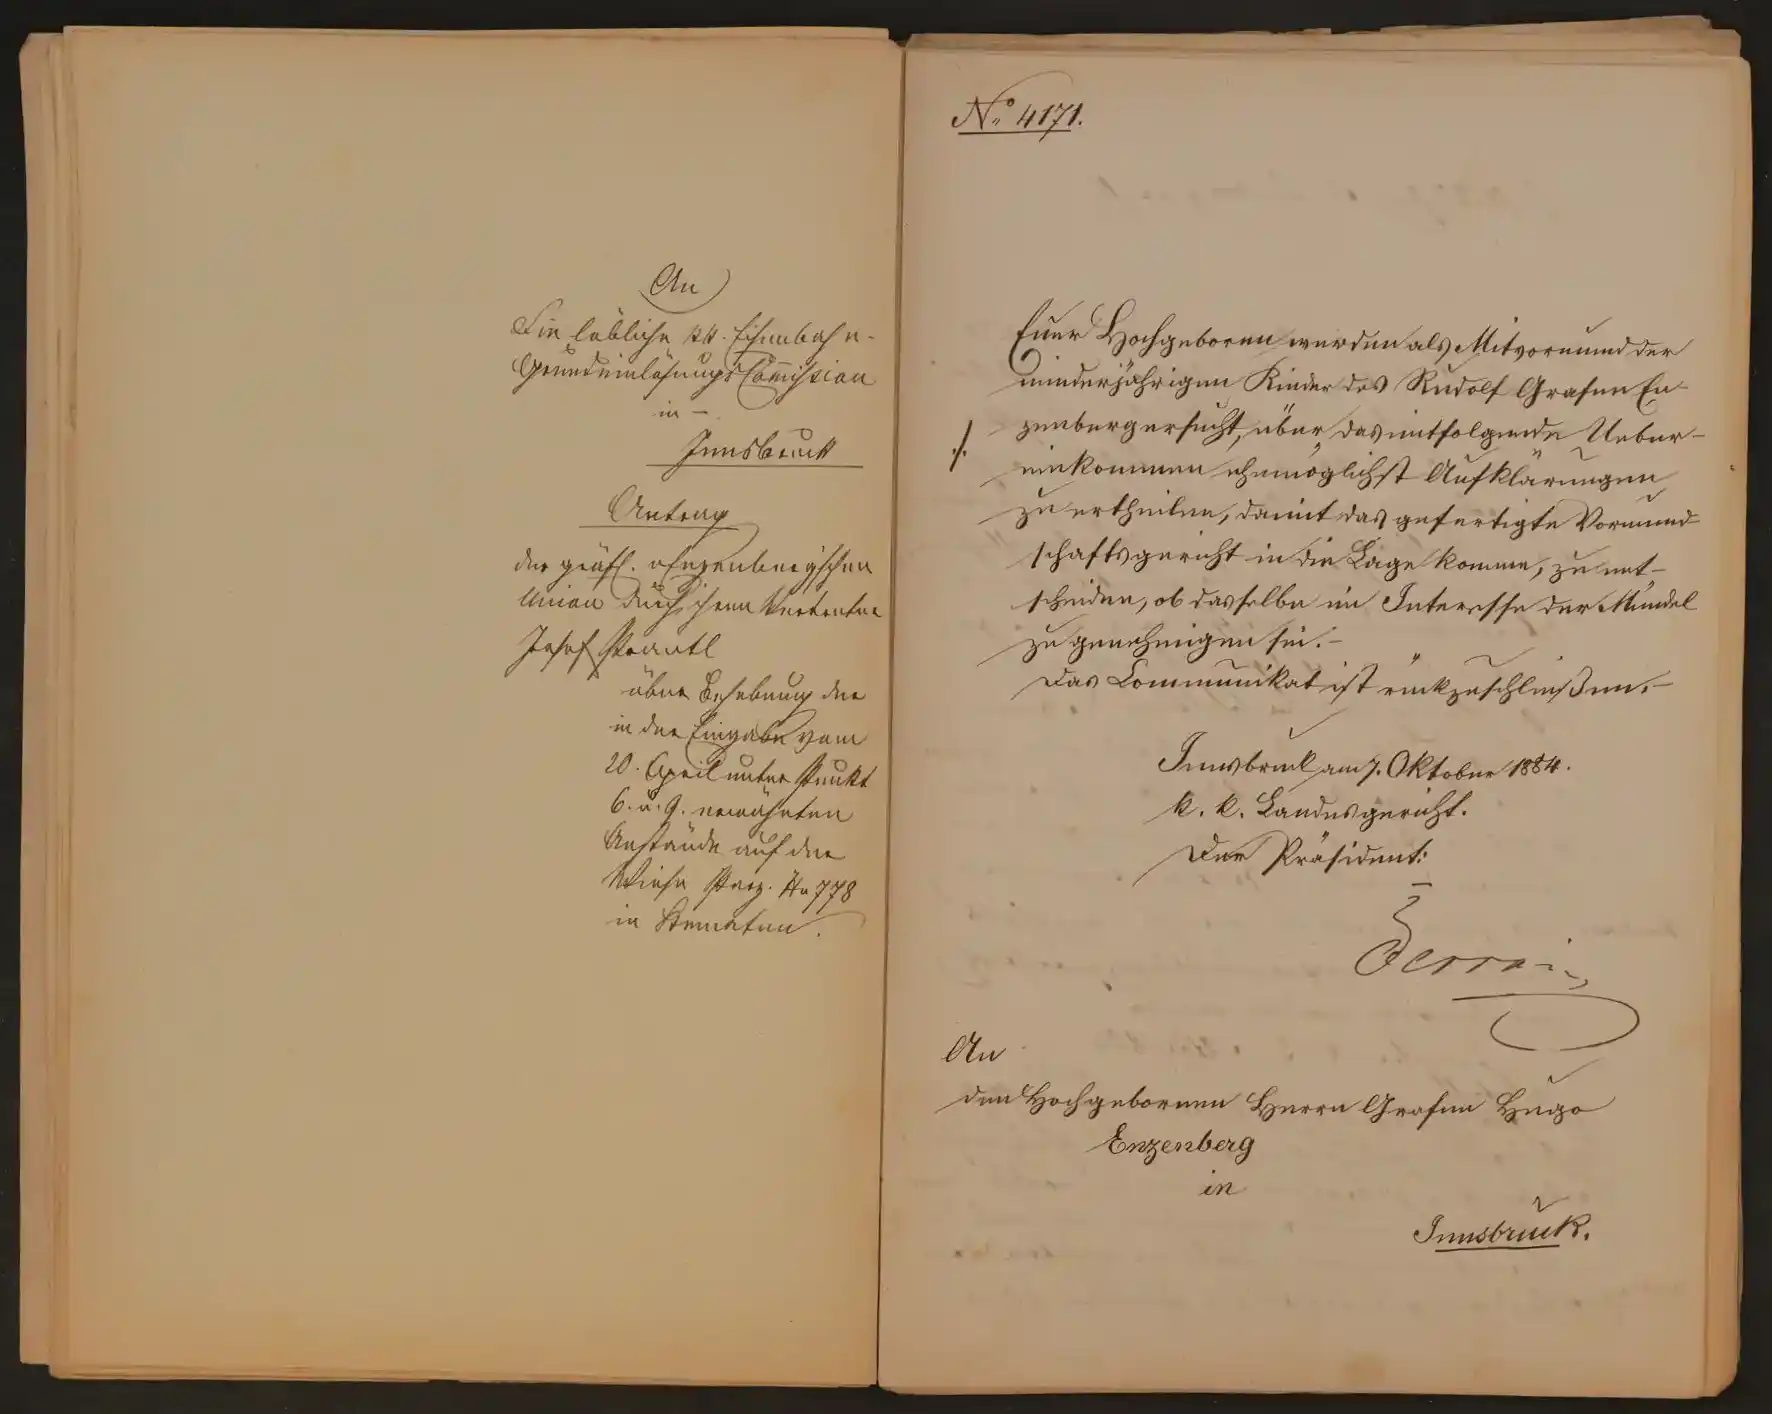 An
Eine löbliche kk. Eisenbahn-
Grundeinlösungs Commission
in –
Innsbruck
Antrag
der gräfl. v Enzenbergischen
Union durch ihren Vertreter
Josef Prantl
über Behebung der
in der Eingabe vom
20. April unter Punkt
6. u. 9. erwähnten
Anstände auf der
Wiese Parz. Nr 778
in Kematen.
No. 4171.
Euer Hochgeboren werden als Mitvormund der
minderjährigen Kinder des Rudolf Grafen En-
zenberg ersucht, über das mitfolgende Ueber-
./.
einkommen ehemöglichst Aufklärungen
zu ertheilen, damit das gefertigte Vormund-
schaftsgericht in die Lage komme, zu ent-
scheiden, ob dasselbe im Interesse der Mündel
zu genehmigen sei.–
Das Communikat ist rückzuschließen.–
Innsbruck am 7. Oktober 1884.
k. k. Landesgericht.
Der Präsident:
An
den Hochgebornen Herrn Grafen Hugo
Enzenberg
in
Innsbruck.